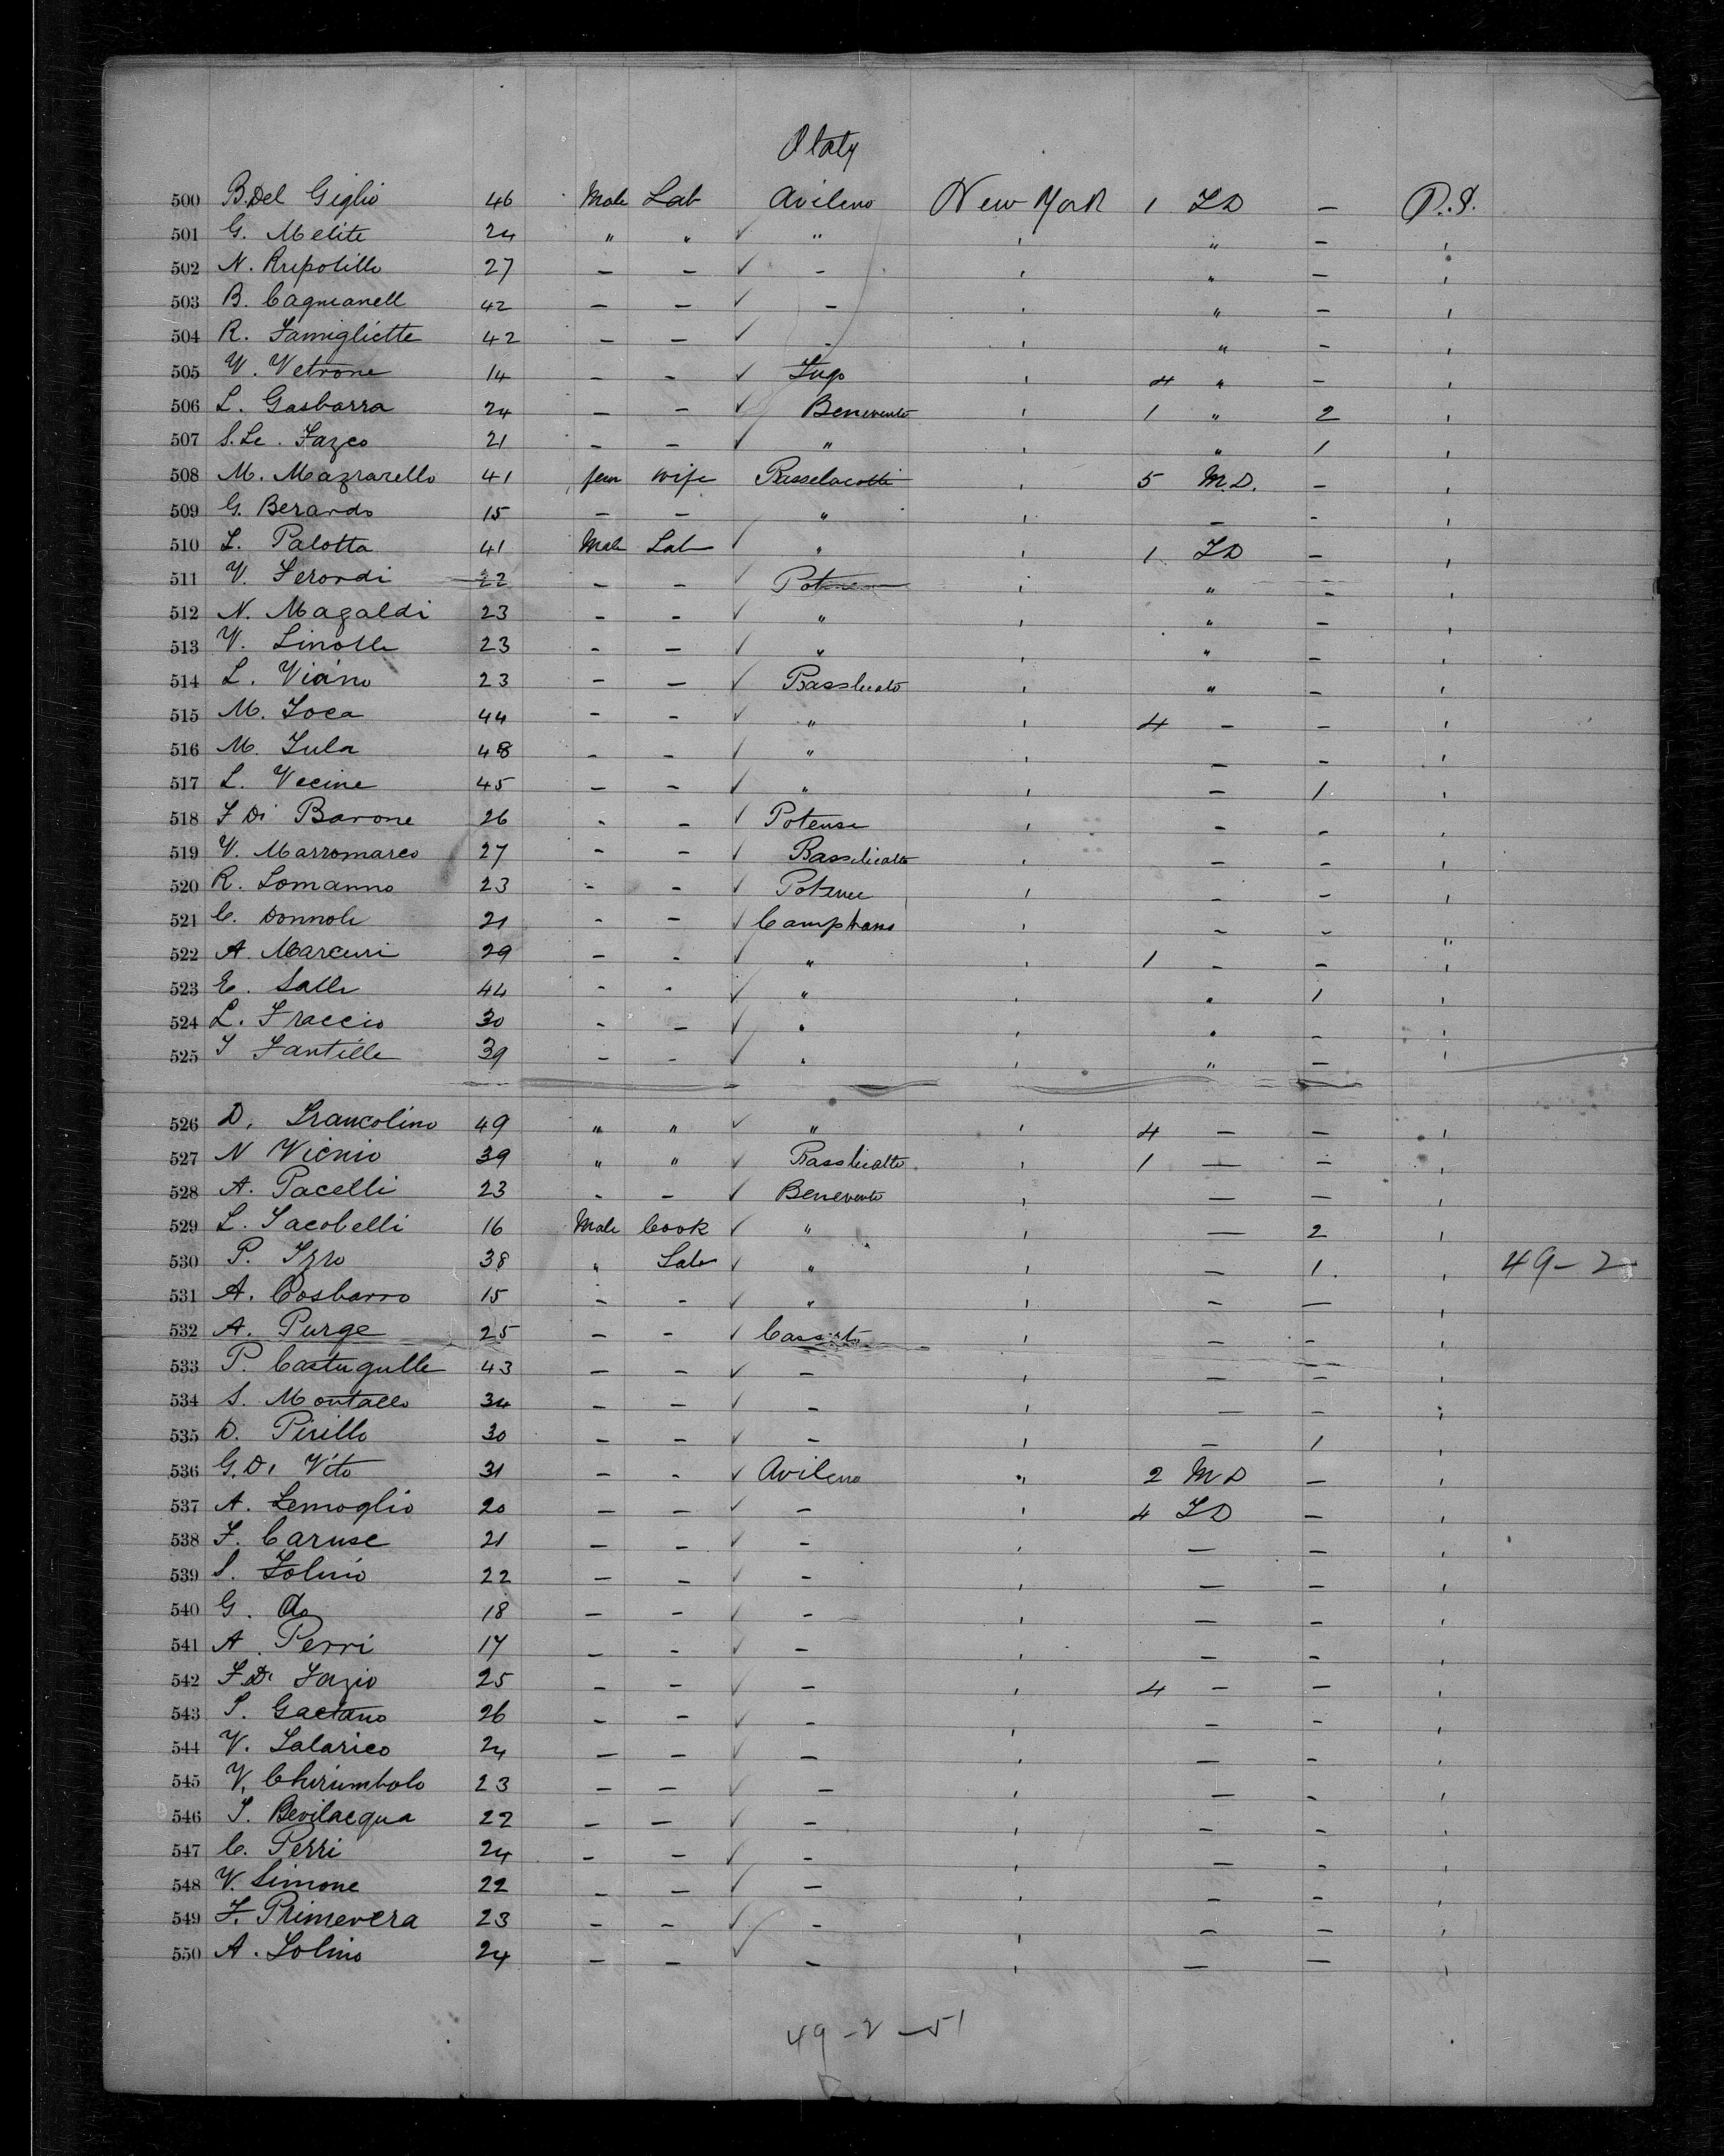 Italy
500 B. Del Giglio 46 Male Lab Avileno New York 1 FD - P.S.
501 G. Melite 24 " " ✓ " ' " - '
502 N. Rripolillo 27 - - ✓ - ' " - '
503 B. Cagnianell 42 - - ✓ - ' " - '
504 R. Famigliette 42 - - ✓ - ' " - '
505 V. Vetrone 14 - - ✓ ' 4 " - '
506 L. Gasbarra 24 - - ✓ Benevento ' 1 " 2 '
507 S. Le. Fazeo 21 - - ✓ " ' " 1 '
508 M. Mazzarello 41 fem wife ' 5 M.D. - '
509 G. Berardo 15 - - " ' - - '
510 L. Palotta 41 Male Lab ✓ " ' 1 FD - '
511 V. Ferordi 22 - - ✓ ' " - '
512 N. Magaldi 23 - - ✓ " ' " - '
513 V. Linolle 23 - - ✓ " ' " - '
514 L. Viano 23 - - ✓ ' " - '
515 M. 44 - - ✓ " ' 4 - - '
516 M. 48 - - ✓ " ' - - '
517 L. Vecine 45 - - ✓ " ' - 1 '
518 F Di Barone 26 - - ✓ Potense ' - - '
519 V. Marromarco 27 - - ✓ Bassilicatta ' - - '
520 R. Lomanno 23 - - ✓ ' - - '
521 C. Donnole 21 - - ✓ ' - - "
522 A. Marcuri 29 - - ✓ " ' 1 - - '
523 E. Salle 44 - - ✓ " ' " 1 '
524 L. Fraccio 30 - - ✓ " ' " - '
525 39 - - ✓ " ' " - '
526 D. Francolino 49 " " ✓ " ' 4 - - '
527 N Vicnio 39 " " ✓ ' 1 - - '
528 A. Pacelli 23 - - ✓ Benevento ' - - '
529 L. Iacobelli 16 Male Cook ✓ " ' - 2 '
530 P. Izzo 38 " Lab ✓ " ' - 1 ' 49-2
531 A. Cosbarro 15 - - ✓ " ' - - '
532 A. Purge 25 - - ✓ ' - - '
533 P. Castugulle 43 - - ✓ - ' - - '
534 S. Montallo 34 - - ✓ - ' - - '
535 D. Pirillo 30 - - ✓ - ' - 1 '
536 G. Di Vito 31 - - ✓ Avileno " 2 MD - '
537 A. Lemoglio 20 - - ✓ - ' 4 FD - '
538 F. Caruse 21 - - ✓ - ' - - '
539 S. Folino 22 - - ✓ - ' - - '
540 G. Do 18 - - ✓ - ' - - '
541 A. Perri 17 - - ✓ - ' - - '
542 F. Di Fazio 25 - - ✓ - ' 4 - - '
543 S. Gaetano 26 - - ✓ - ' - - '
544 V. Talarico 24 - - ✓ - ' - - '
545 V. Chirimbolo 23 - - ✓ - ' - - '
546 Bevilacqua 22 - - ✓ - ' - - '
547 C. Perri 24 - - ✓ - ' - - '
548 V. Simone 22 - - ✓ - ' - - '
549 F. Primevera 23 - - ✓ - ' - - '
550 A. Folino 24 - - ✓ - ' - - '
49-2-51